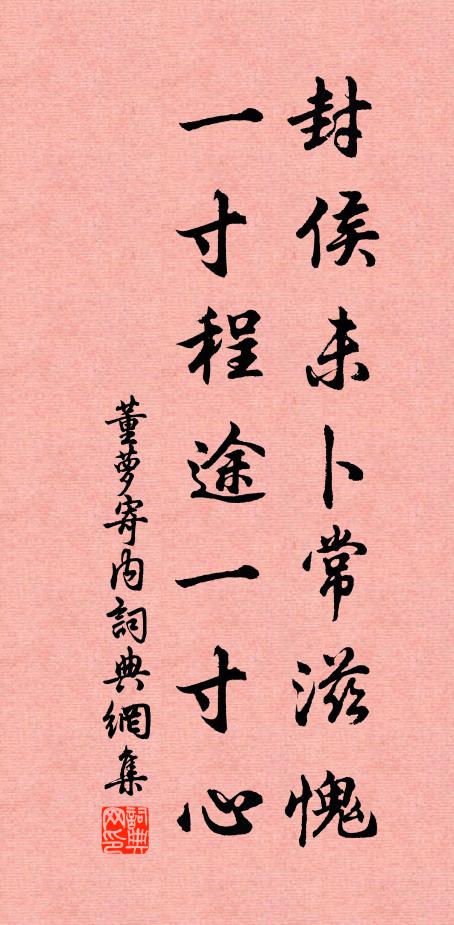 封侯未卜常滋愧
一寸程途一寸心
董萝寄内詞典網集
詞典网印